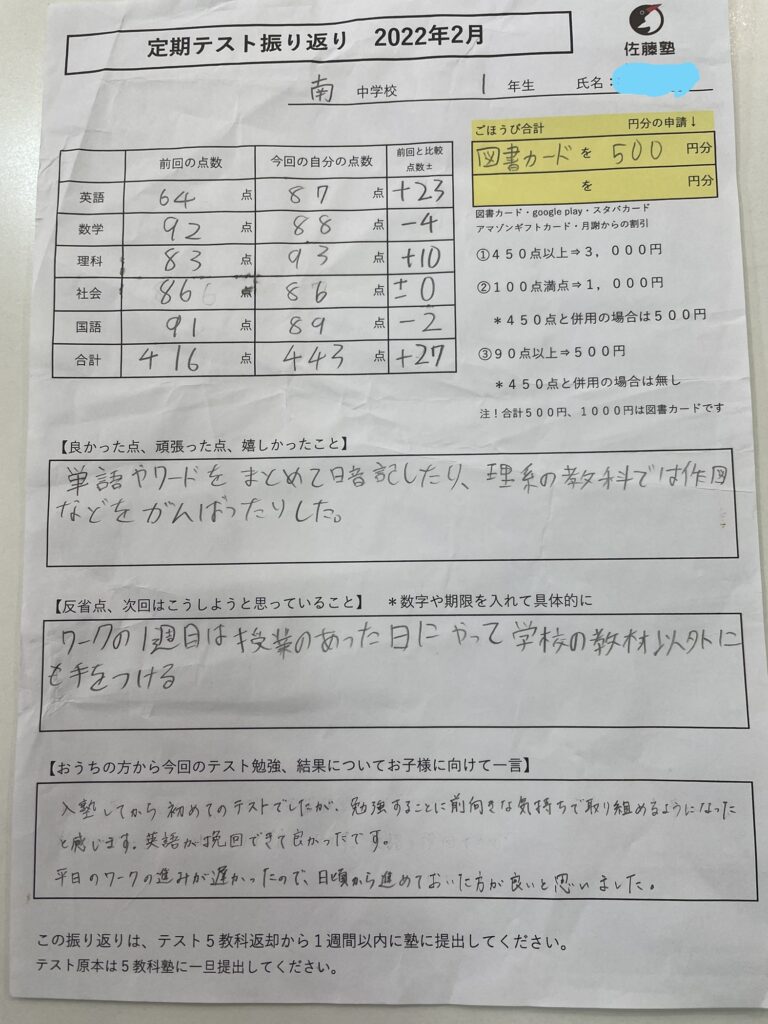 定期テスト振り返り 2022年2月
佐藤塾
南 中学校 1 年生 氏名：
ごほうび合計 円分の申請↓
図書カード を 500 円分
を 円分
図書カード・google play・スタバカード
アマゾンギフトカード・月謝からの割引
①４５０点以上⇒３，０００円
②１００点満点⇒１，０００円
＊４５０点と併用の場合は５００円
③９０点以上⇒５００円
＊４５０点と併用の場合は無し
注！合計５００円、１０００円は図書カードです
前回の点数 今回の自分の点数 前回と比較
点数±
英語 64 点 87 点 +23
数学 92 点 88 点 -4
理科 83 点 93 点 +10
社会 86 点 86 点 ±0
国語 91 点 89 点 -2
合計 416 点 443 点 +27
【良かった点、頑張った点、嬉しかったこと】
単語やワードをまとめて暗記したり、理系の教科では作図
などをがんばったりした。
【反省点、次回はこうしようと思っていること】 ＊数字や期限を入れて具体的に
ワークの1週目は授業のあった日にやって学校の教材以外に
も手をつける
【おうちの方から今回のテスト勉強、結果についてお子様に向けて一言】
入塾してから初めてのテストでしたが、勉強することに前向きな気持ちで取り組めるようになった
と感じます。英語が挽回できて良かったです。
平日のワークの進みが遅かったので、日頃から進めておいた方が良いと思いました。
この振り返りは、テスト５教科返却から１週間以内に塾に提出してください。
テスト原本は５教科塾に一旦提出してください。